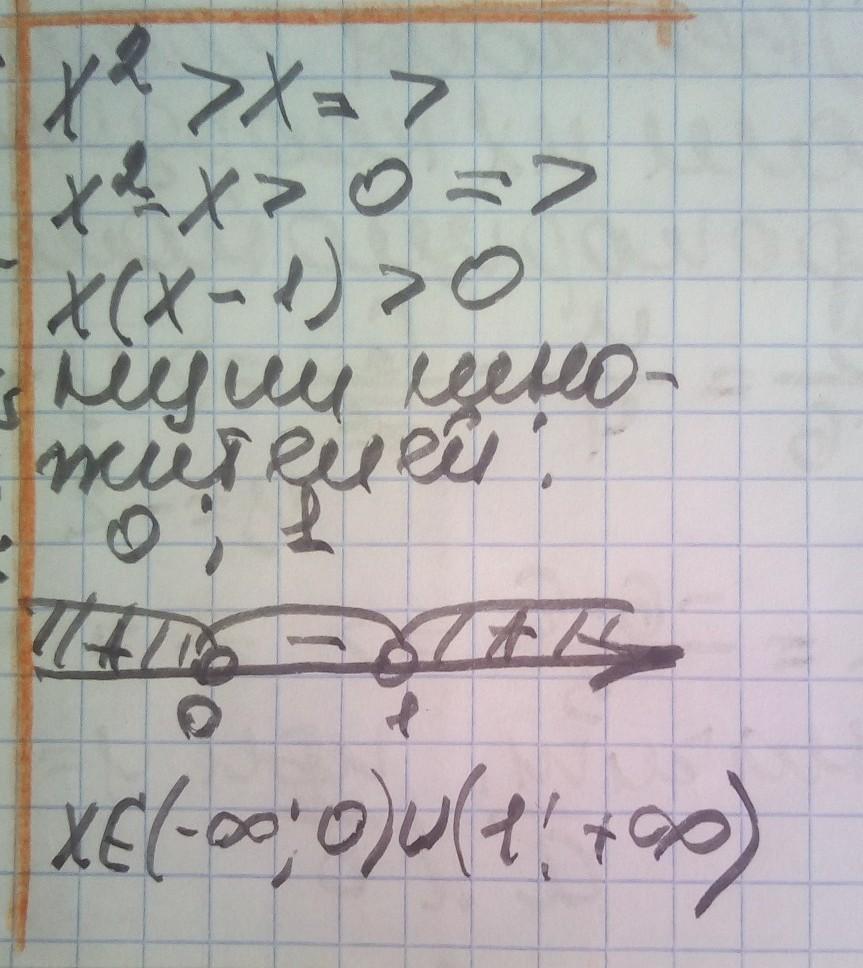 x² > x = >
x² - x > 0 = >
x(x - 1) > 0
нули мно-
жителей:
0 ; 1
+ - +
0 1
x∈(-∞; 0)∪(1; +∞)